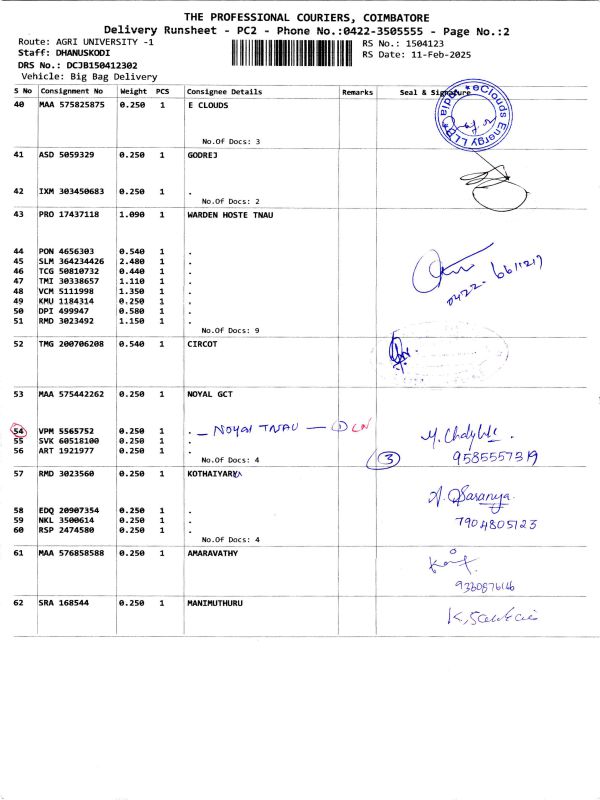 THE PROFESSIONAL COURIERS, COIMBATORE
Delivery Runsheet - PC2 - Phone No.:0422-3505555 - Page No.:2
Route: AGRI UNIVERSITY -1
RS No.: 1504123
Staff: DHANUSKODI
RS Date: 11-Feb-2025
DRS No.: DCJB150412302
Vehicle: Big Bag Delivery
S No Consignment No Weight PCS Consignee Details Remarks Seal & Signature
40 MAA 575825875 0.250 1 E CLOUDS
No.Of Docs: 3
eClouds Energy LLP
41 ASD 5059329 0.250 1 GODREJ
42 IXM 303450683 0.250 1 .
No.Of Docs: 2
43 PRO 17437118 1.090 1 WARDEN HOSTE TNAU
44 PON 4656303 0.540 1 .
45 SLM 364234426 2.480 1 .
46 TCG 50810732 0.440 1 .
47 TMI 30338657 1.110 1 .
48 VCM 5111998 1.350 1 .
49 KMU 1184314 0.250 1 .
50 DPI 499947 0.580 1 .
51 RMD 3023492 1.150 1 .
No.Of Docs: 9
0422- 6611217
52 TMG 200706208 0.540 1 CIRCOT
53 MAA 575442262 0.250 1 NOYAL GCT
54 VPM 5565752 0.250 1 . - Noyal TNAU - 1 LN
55 SVK 60518100 0.250 1 .
56 ART 1921977 0.250 1 .
No.Of Docs: 4
3
9585557319
57 RMD 3023560 0.250 1 KOTHAIYARY
58 EDQ 20907354 0.250 1 .
59 NKL 3500614 0.250 1 .
60 RSP 2474580 0.250 1 .
No.Of Docs: 4
Saranya
7904805723
61 MAA 576858588 0.250 1 AMARAVATHY
9360876146
62 SRA 168544 0.250 1 MANIMUTHURU